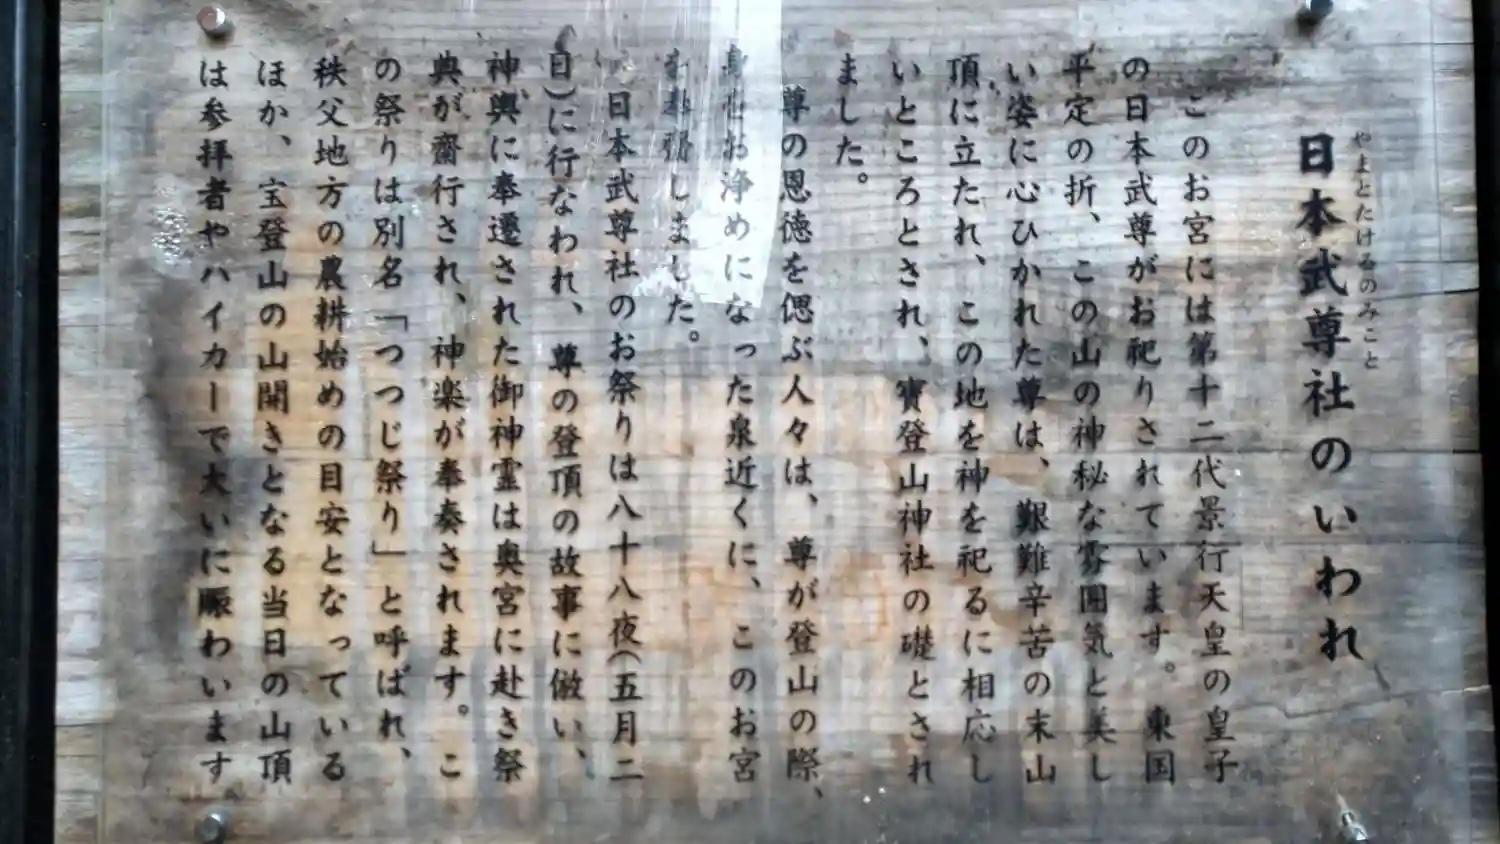 やまとたけるのみこと
日本武尊社のいわれ
このお宮には第十二代景行天皇の皇子
の日本武尊がお祀りされています。東国
平定の折、この山の神秘な雰囲気と美し
い姿に心ひかれた尊は、艱難辛苦の末山
頂に立たれ、この地を神を祀るに相応し
いところとされ、寶登山神社の礎とされ
ました。
尊の恩徳を偲ぶ人々は、尊が登山の際、
身をお浄めになった泉近くに、このお宮
しました。
日本武尊社のお祭りは八十八夜(五月二
日)に行なわれ、尊の登頂の故事に倣い、
神輿に奉遷された御神霊は奥宮に赴き祭
典が齋行され、神楽が奉奏されます。こ
の祭りは別名「つつじ祭り」と呼ばれ、
秩父地方の農耕始めの目安となっている
ほか、宝登山の山開きとなる当日の山頂
は参拝者やハイカーで大いに賑わいます